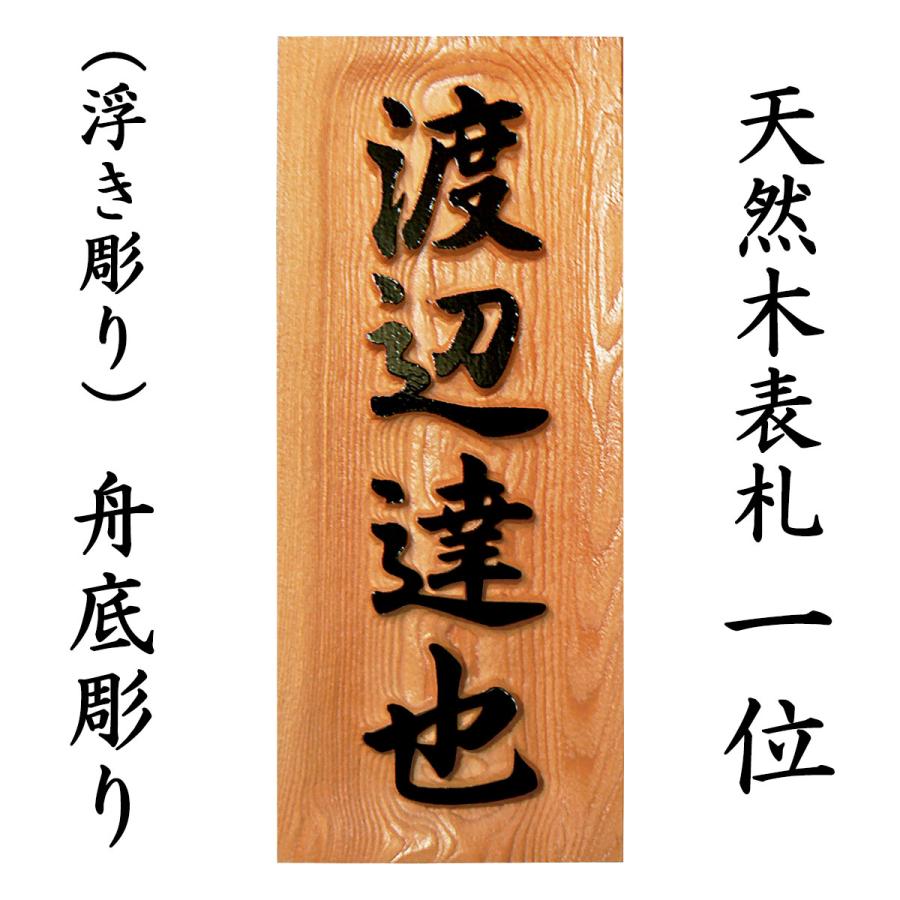 天然木表札 一位
渡辺達也
（浮き彫り） 舟底彫り